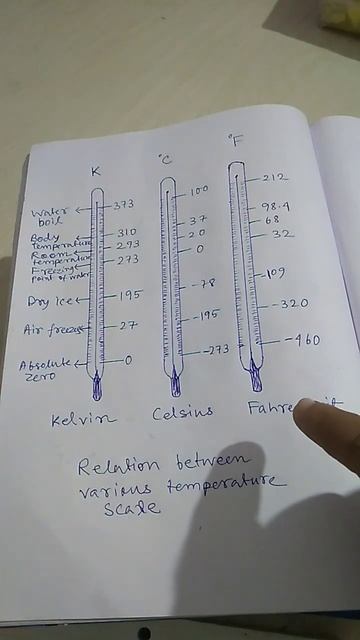 K
°C
°F
Water boil
373
100
212
Body temperature
310
37
98.4
Room temperature
293
20
68
Freezing point of water
273
0
32
Dry ice
195
-78
-109
Air freeze
27
-195
-320
Absolute zero
0
-273
-460
Kelvin
Celsius
Relation between
various temperature
scale